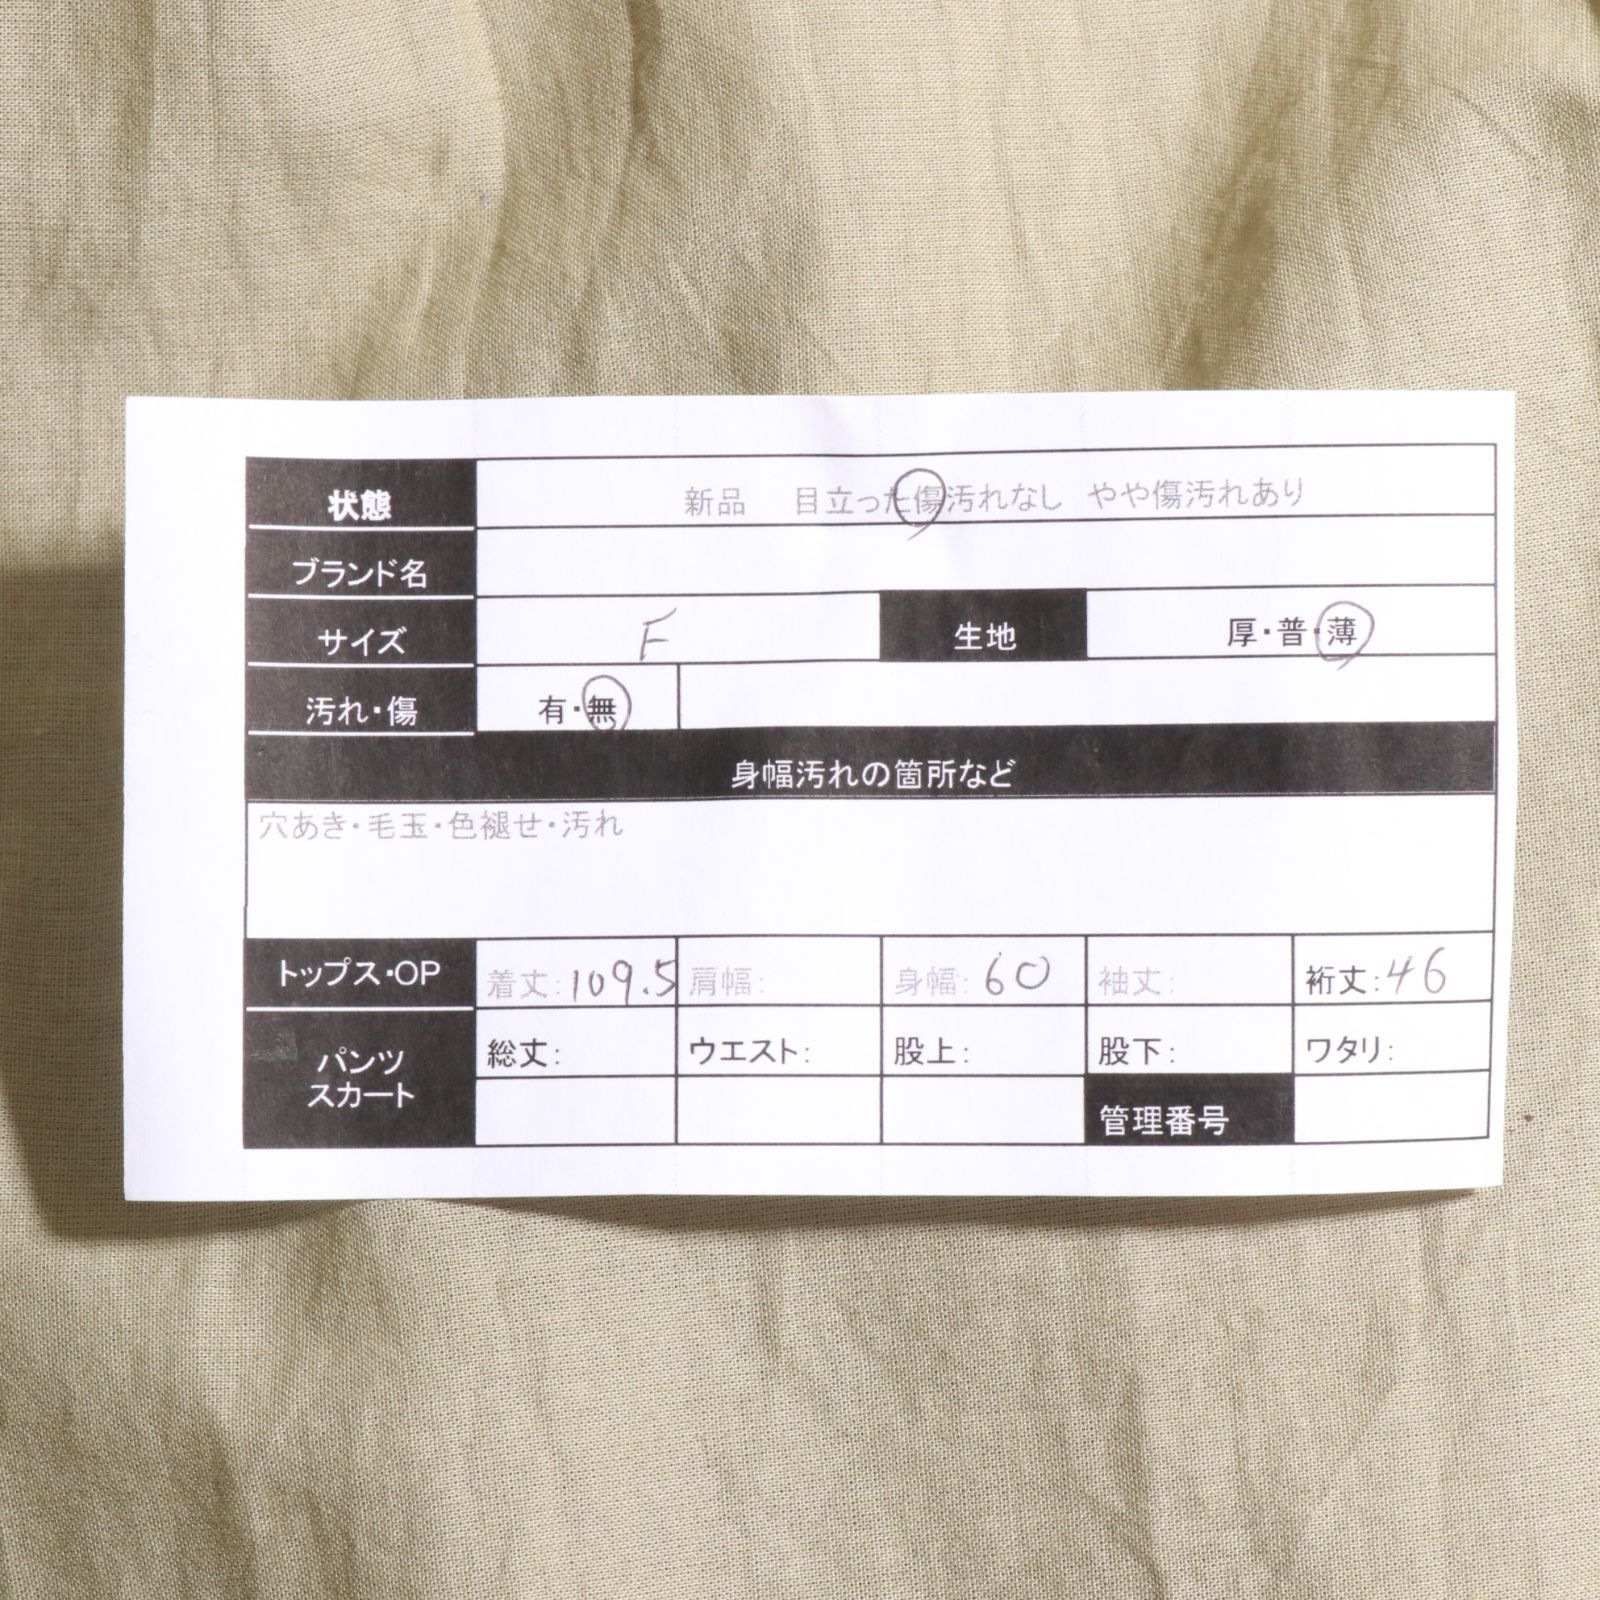 状態 新品 目立った傷汚れなし やや傷汚れあり
ブランド名
サイズ F 生地 厚・普・薄
汚れ・傷 有・無
身幅汚れの箇所など
穴あき・毛玉・色褪せ・汚れ
トップス・OP 着丈:109.5 肩幅: 身幅:60 袖丈: 裄丈:46
パンツ 総丈: ウエスト: 股上: 股下: ワタリ:
スカート 管理番号